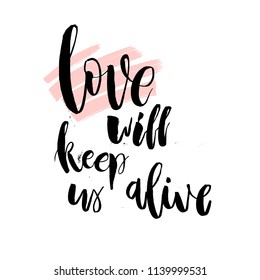 love
will
keep
us alive
shutterstock.com · 1139999531